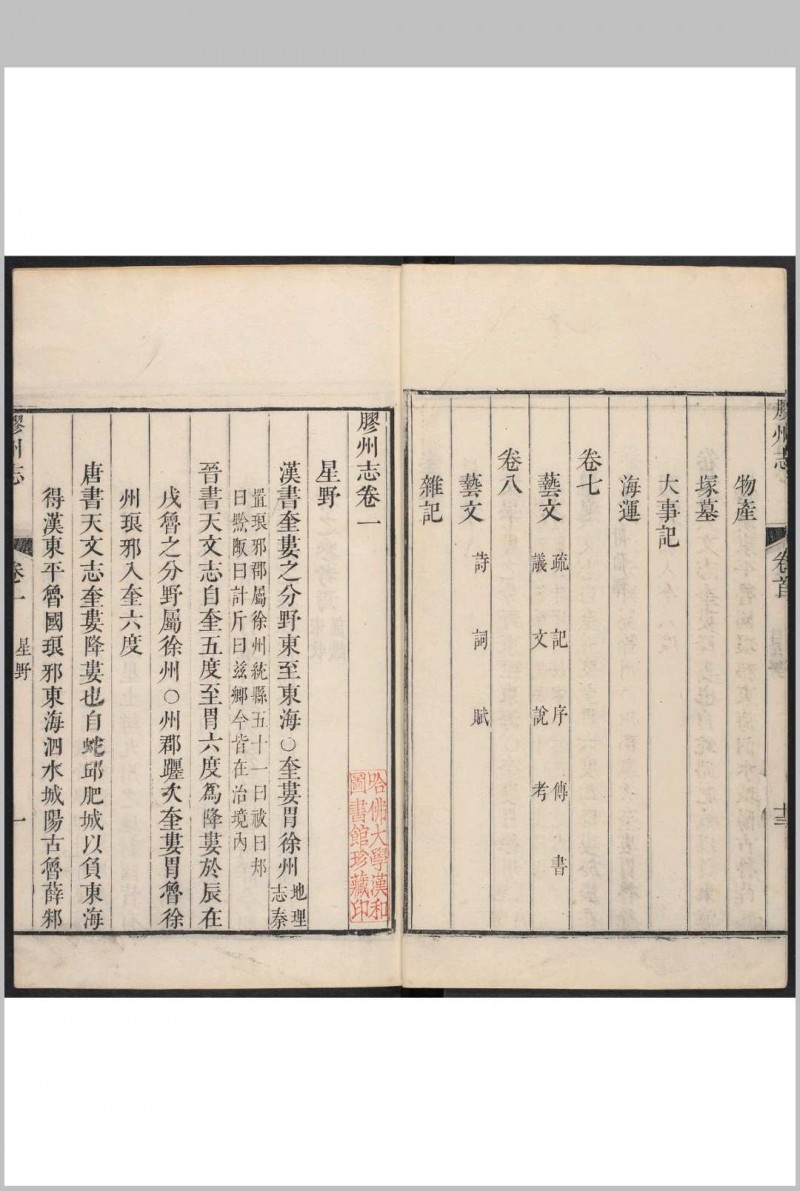 膠州志
卷首
十三
物產
塚墓
大事記
海運
卷七
藝文 疏 記 序 傳 書
議 文 說 考
卷八
藝文 詩 詞 賦
雜記
膠州志卷一
哈佛大學漢和
圖書館珍藏印
星野
漢書奎婁之分野東至東海○奎婁胃徐州 地理
志秦
置琅邪郡屬徐州統縣五十一曰祓曰邞
曰黔陬曰計斤曰兹鄉今皆在治境內
晉書天文志自奎五度至胃六度爲降婁於辰在
戌魯之分野屬徐州○州郡躔次奎婁胃魯徐
州琅邪入奎六度
唐書天文志奎婁降婁也自蛇邱肥城以負東海
得漢東平魯國琅邪東海泗水城陽古魯薛邾
膠州志
卷一
星野
一